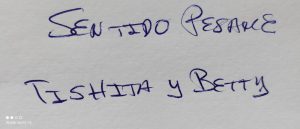 SENTIDO PESAME
TISHITA Y BETTY